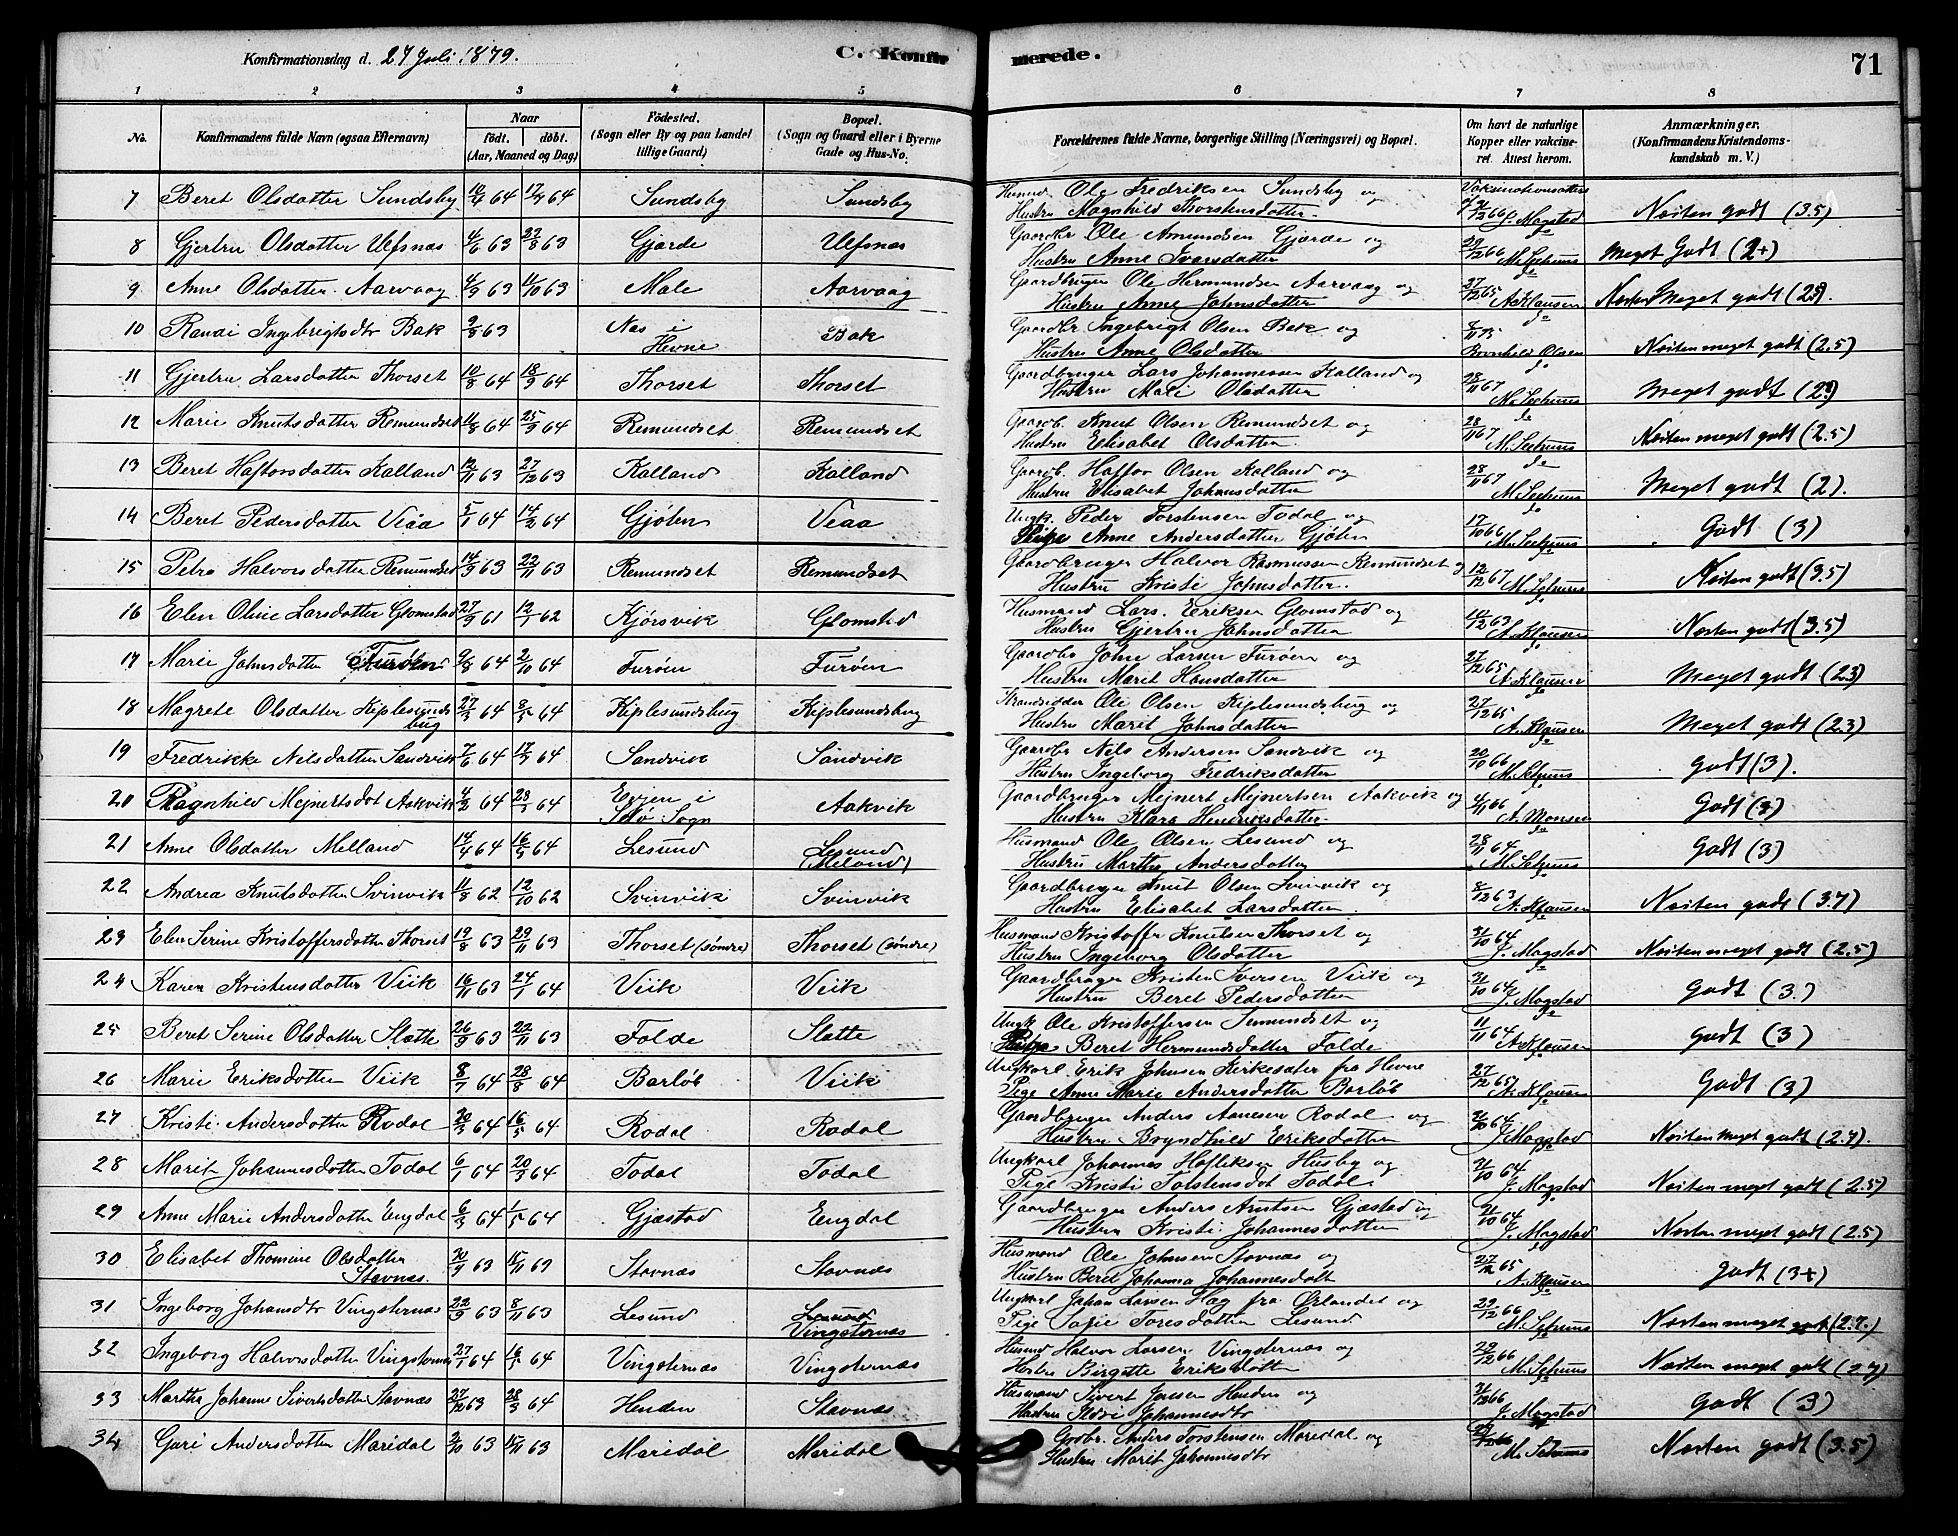 Konfirmationsdag d. 27 Juli 1879.
C. Konfirmerede.
71
1 2 3 4 5 6 7 8
No.
Konfirmandens fulde Navn (ogsaa Efternavn)
Naar
født. døbt.
(Aar, Maaned og Dag)
Fødested.
(Sogn eller By og paa Landet
tillige Gaard)
Bopæl.
(Sogn og Gaard eller i Byerne
Gade og Hus-No.
Forældrenes fulde Navne, borgerlige Stilling (Næringsvei) og Bopæl.
Om havt de naturlige
Kopper eller vakcine-
ret. Attest herom.
Anmærkninger.
(Konfirmandens Kristendoms-
kundskab m. V.)
7 Beret Olsdatter Sundsby 64 64 Sundsby Sundsby Ole Fredriksen Sundsby og
Hustru Magnhild Thorstensdatter J. Magstad Næsten godt (3.5)
8 Gjertru Olsdatter Ulfsnæs 4/6 63 63 Gjørde Ulfsnæs Gaardbr Ole Amundsen Gjørde og
Hustru Anne Ivarsdatter 29/12 66 Meget Godt (2+)
9 Anne Olsdatter Aarvaag 63 63 Male Aarvaag Gaardbruger Ole Hermundsen Aarvaag og
Hustru Anne Johnsdatter 27/12 65 A. Klausen Meget godt
10 Randi Ingebrigtsdtr Bak 9/8 63 Næs i
Hevne Bak Gaardbr Ingebrigt Olsen Bek og
Hustru Anne Olsdatter Næsten meget godt (2.5)
11 Gjertru Larsdatter Thorset 10/8 64 18/9 64 Thorset Thorset Gaardbruger Lars Johannessen Kalland og
Hustru Mali Olsdatter 28/11 67 Meget godt
12 Marie Knutsdatter Remundset 64 25/9 64 Remundset Remundset Gaardb. Knut Olsen Remundset og
Hustru Elisabet Olsdatter 28/11 67 Næsten meget godt (2.5)
13 Beret Haftorsdatter Kalland 12/11 63 27/12 63 Kalland Kalland Gaardb. Haftor Olsen Kalland og
Hustru Elisabet Johansdatter 28/11 67 Meget godt (2).
14 Beret Pedersdatter Veaa 5/1 64 14/2 64 Gjølen Veaa Ungk. Peder Torstensen Todal og
Pige Anne Andersdatter Gjølen 17/10 66 Godt (3)
15 Petra Halvorsdatter Remundset 14/9 63 22/11 63 Remundset Remundset Gaardbruger Halvor Rasmussen Remundset og
Hustru Kristi Johnsdatter. 12/12 67 Næsten godt (3.5)
16 Elen Oline Larsdatter Glomstad 27/9 61 12/1 62 Kjørsvik Glomsted Husmand Lars Eriksen Glomstad og
Hustru Gjertru Johnsdatter 63 A. Klausen Næsten godt (3.5)
17 Marie Johnsdatter Furøen 9/8 64 2/10 64 Furøen Furøen Gaardbr John Larsen Furøen og
Hustru Marit Hansdatter 27/12 65 A. Klausen Meget godt (2.3)
18 Magrete Olsdatter Kiplesunds
bug 27/3 64 8/5 64 Kiplesundsbug Kiplesundsbug Strandsidder Ole Olsen Kiplesundsbug og
Hustru Marit Johnsdatter 27/12 65 A. Klausen Meget godt (2.3)
19 Fredrikke Nilsdatter Sandvik 7/6 64 17/7 64 Sandvik Sandvik Gaardbr Nils Andersen Sandvik og
Hustru Ingeborg Fredriksdatter 20/10 66 Godt (3).
20 Ragnhild Mejnertsdot Aakvik 64 64 Sogn Aakvik Gaardbruger Mejnert Mejnertsen Aakvik og
Hustru Klara Hendriksdatter 66 A. Monsen Godt (3)
21 Anne Olsdatter Melland 14/4 64 16/5 64 Lesund Lesund
(Meland) Husmand Ole Olsen Lesund og
Hustru Marthe Andersdatter 28/11 64 Godt (3)
22 Andrea Knutsdatter Svinvik 11/8 62 12/10 62 Svinvik Svinvik Gaardbruger Knut Olsen Svinvik og
Hustru Elisabet Larsdatter 8/12 63 A. Klausen Næsten godt (3.7)
23 Elen Serine Kristoffersdatter Thorset 19/8 63 29/11 63 Thorset (søndre) Thorset (søndre) Husmand Kristoffer Knutsen Thorset og
Hustru Ingeborg Olsdatter 31/10 64 J. Magstad Næsten meget godt (2.5)
24 Karen Kristensdatter Viik 16/11 63 24/1 64 Viik Viik Gaardbruger Kristen Iversen Viik og
Hustru Beret Pedersdatter 31/10 64 J. Magstad Godt (3.)
25 Beret Serine Olsdatter Slatte 26/9 63 22/11 63 Folde Slatte Ungk Ole Kristoffersen og
Pige Beret Hermundsdatter Folde 11/11 64 A. Klausen Godt (3)
26 Marie Eriksdatter Viik 8/7 64 28/8 64 Barløb Viik Ungkarl Erik Johnsen Kirkesæter fra Hevne
Pige Anne Marie Andersdatter Barløb 27/12 65 A. Klausen Godt (3)
27 Kristi Andersdatter Rodal 20/3 64 16/5 64 Rodal Rodal Gaardbruger Anders Aanesen Rodal og
Hustru Bryndhild Eriksdatter 31/10 64 J. Magstad Næsten meget godt (2.7).
28 Marit Johannesdatter Todal 6/1 64 20/3 64 Todal Todal Ungkarl Johannes Hafliksen Husby og
Pige Kristi Torstensdot Todal 31/10 64 J. Magstad Næsten meget godt (2.5)
29 Anne Marie Andersdatter Engdal 6/3 64 1/5 64 Gjæstad Engdal Gaardbruger Anders Arntsen Gjæstad og
Hustru Kristi Johannesdatter 31/10 64 J. Magstad Næsten meget godt (2.5)
30 Elisabet Thomine Olsdatter
Stavnæs. 63 15/11 63 Stavnæs Stavnæs Husmand Ole Johnsen Stavnæs og
Hustru Beret Johanna Johannesdatt 27/12 65 A. Klausen Godt (3+)
31 Ingeborg Johansdtr Vingsternæs 22/9 63 8/11 63 Lesund Lesund
Vingsternæs Ungkarl Johan Larsen Hag fra Ørlandet og
Pige Sofie Toresdatter Lesund 29/12 66 Næsten meget godt (2.7.)
32 Ingeborg Halvorsdatter Vingsternæs 27/1 64 64 Vingsternæs Vingsternæs Husmd Halvor Larsen Vingsternæs og
Birgitte Eriksdatt 29/12 66 Næsten meget godt (2.7)
33 Martha Johanne Sivertsdatter Stavnæs 27/12 63 28/3 64 Henden Stavnæs Husmand Sivert Jensen Henden og
Hustru Johannesdtr 66 J. Magstad Godt (3)
34 Guri Andersdatter Maridal 63 15/11 63 Maridal Maridal Anders Torstensen Maridal og
Hustru Marit Johannesdtr Næsten godt (3.5)